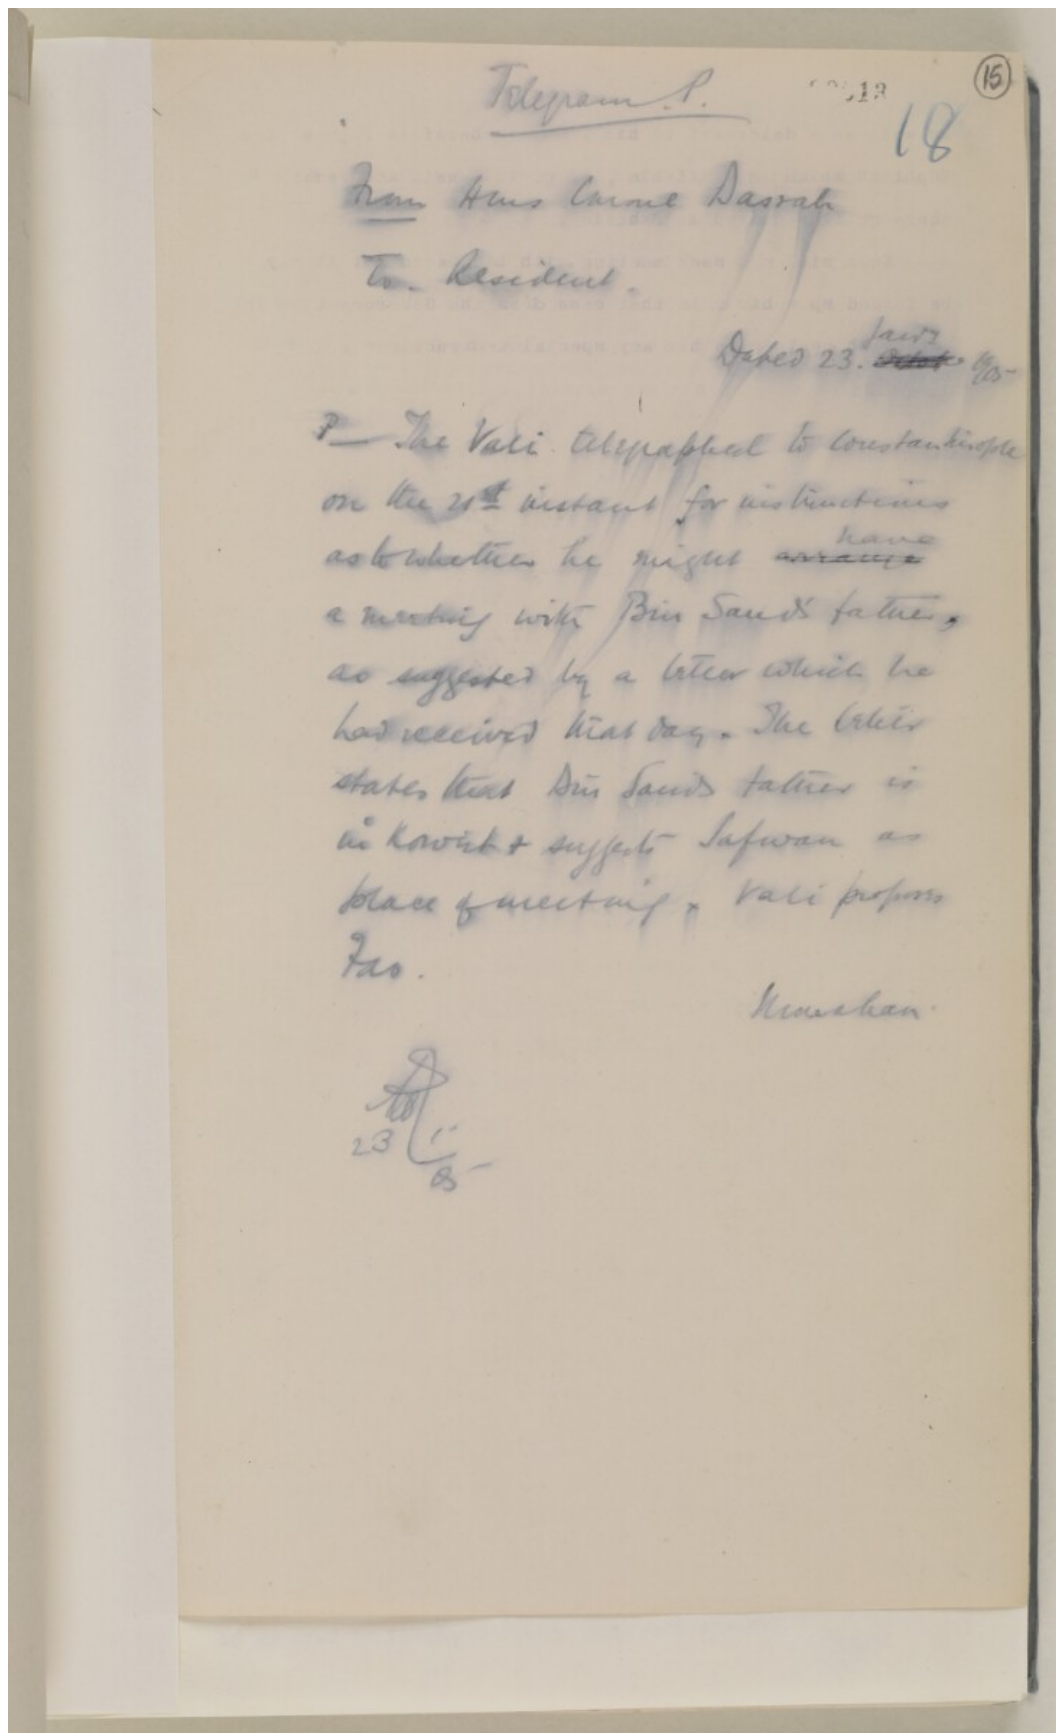 15
18
Telegram. P.
From Hms Consul Basrah
To. Resident.
Jany
Dated 23. 05
P— The Vali telegraphed to Constantinople
on the 21st instant for instructions
have
as to whether he might arrange
a meeting with Bin Saud's father,
as suggested by a letter which he
had received that day. The letter
states that Bin Sauds father is
in Koweit & suggests Safwan as
place of meeting. Vali proposes
Fao.
Monahan.
23
05